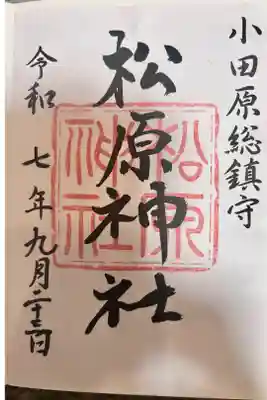 小田原総鎮守
松原神社
松原
神社
令和七年九月二十三日